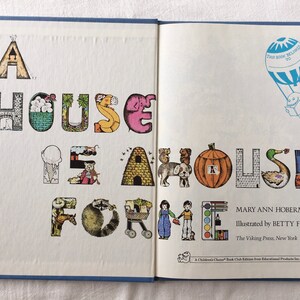 A
HOUSE
IS A HOUSE
FOR ME
MARY ANN HOBERMAN
Illustrated by BETTY
The Viking Press, New York